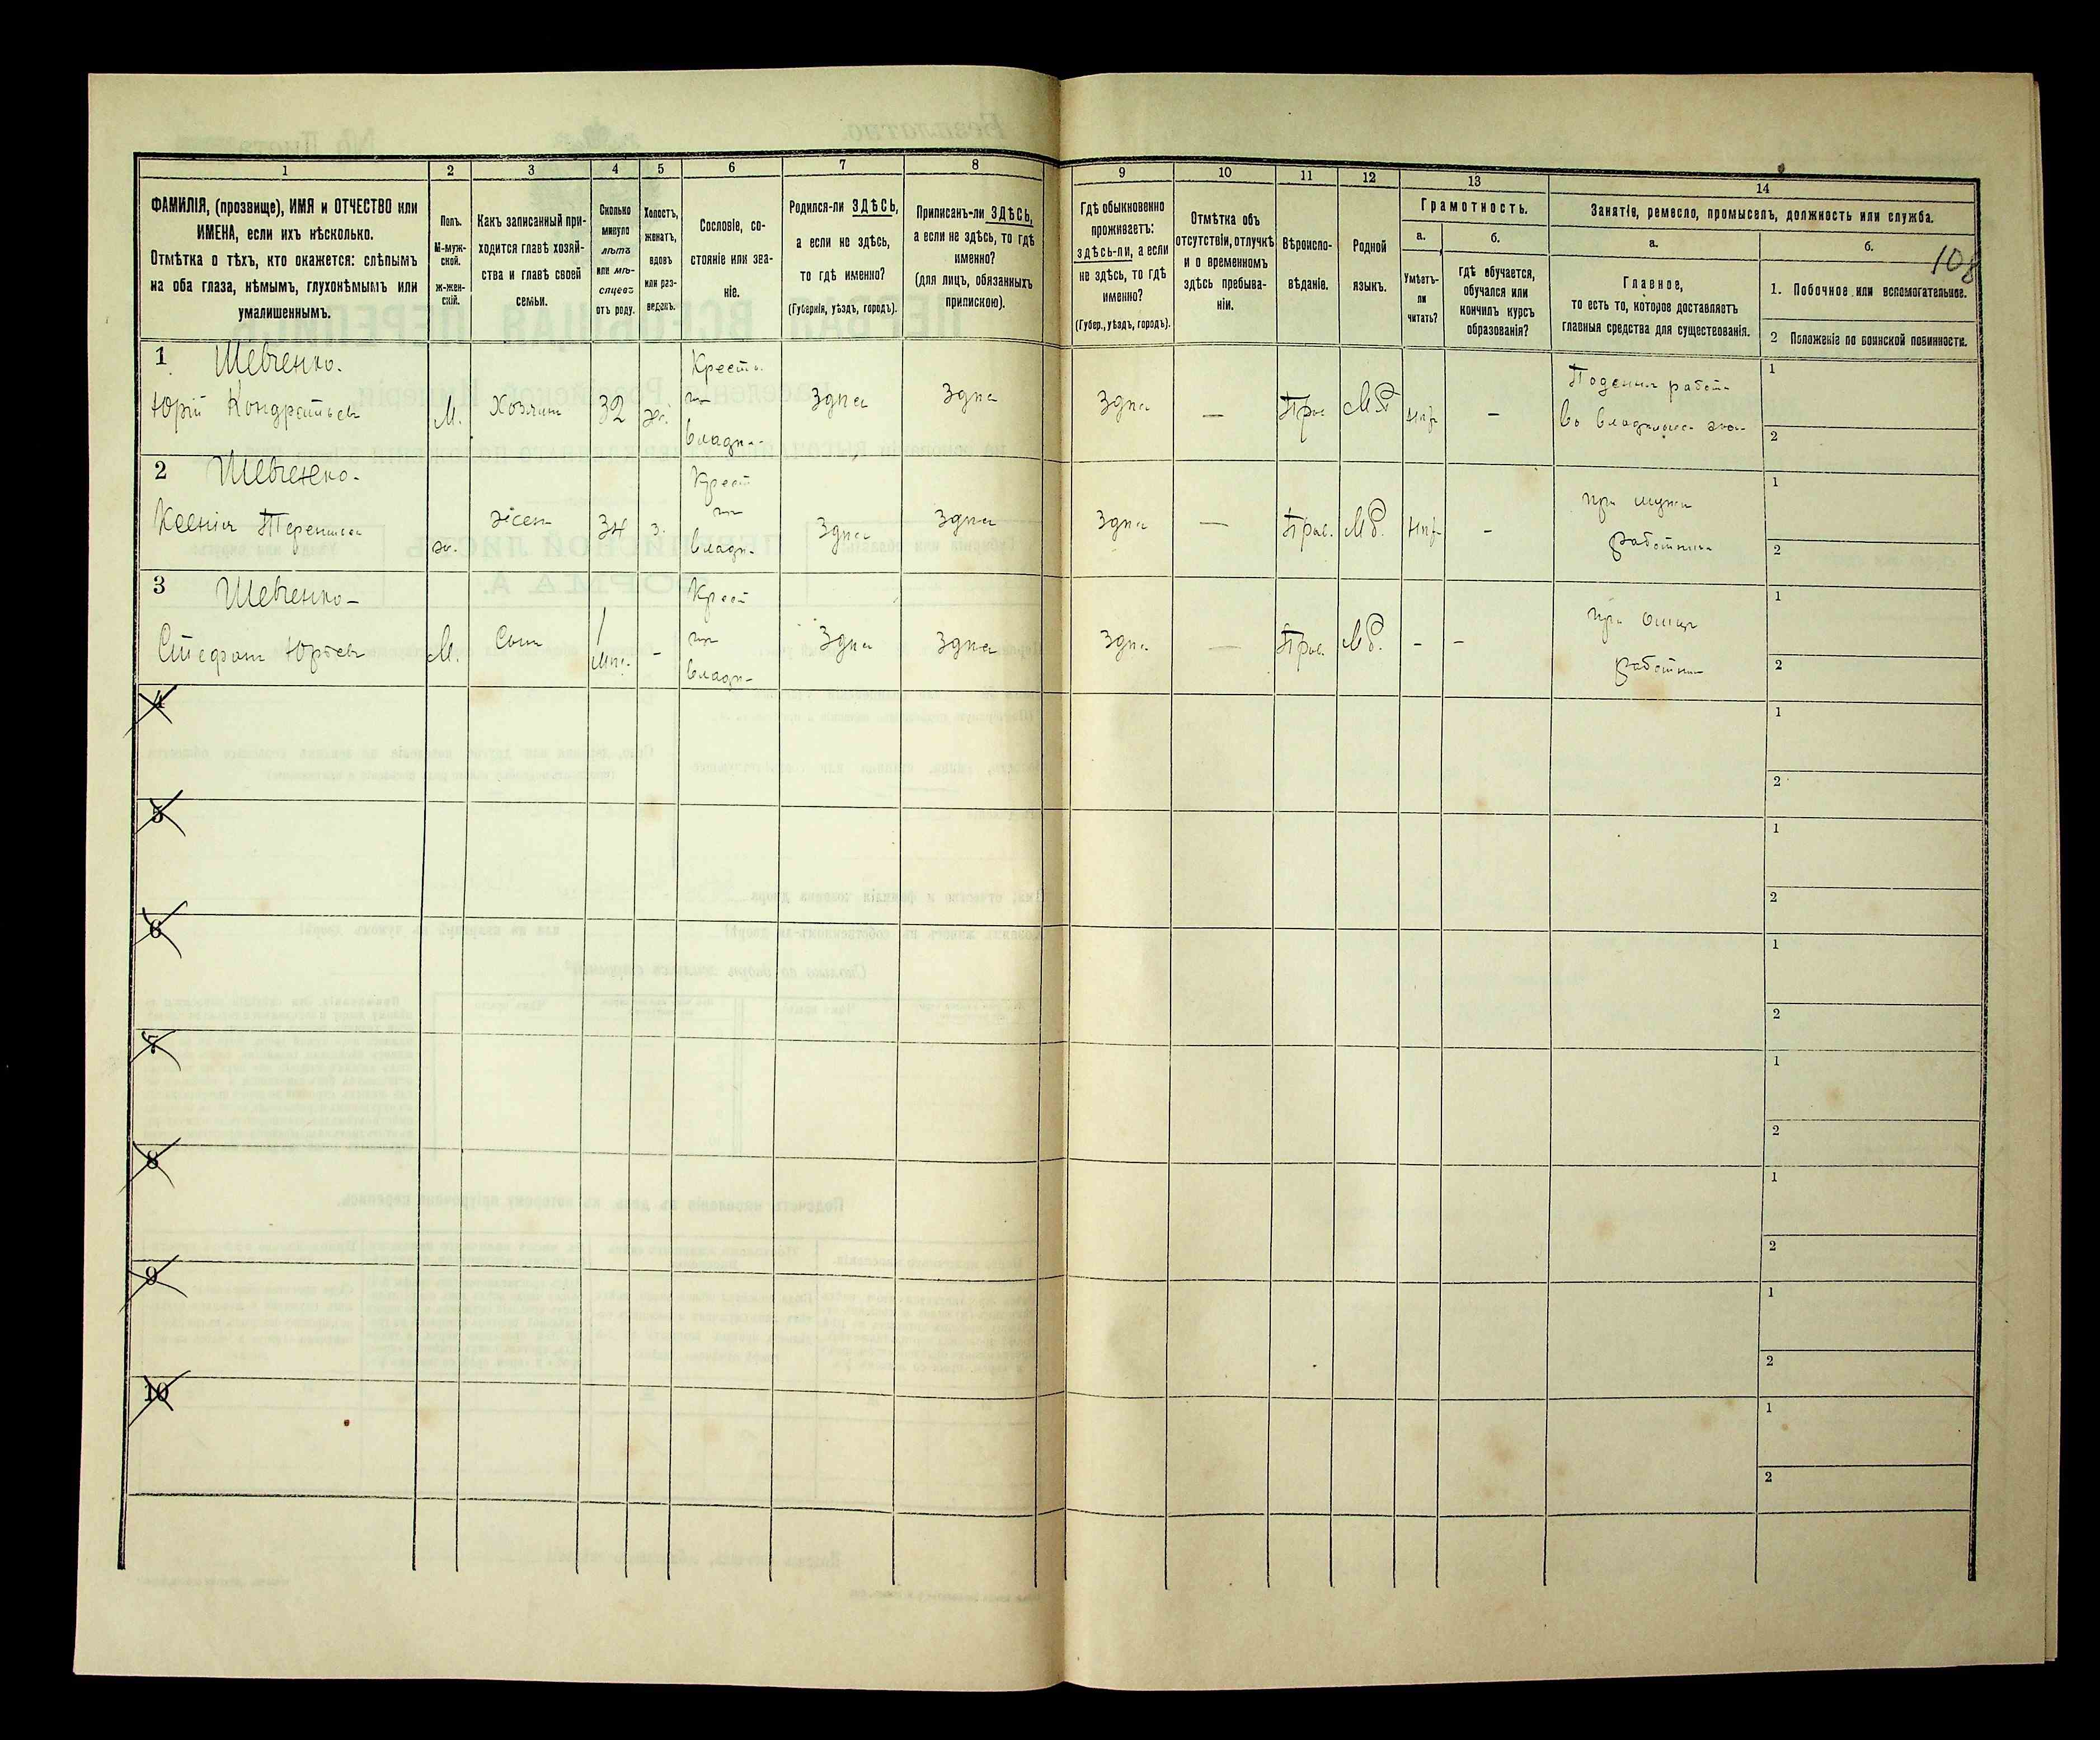 108
1
2
3
4
5
6
7
8
9
10
11
12
13
14
ФАМИЛІЯ, (прозвище), ИМЯ и ОТЧЕСТВО или
ИМЕНА, если ихъ нѣсколько.
Отмѣтка о тѣхъ, кто окажется: слѣпымъ
на оба глаза, нѣмымъ, глухонѣмымъ или
умалишеннымъ.
Полъ.
М-муж-
ской.
ж-жен-
скій.
Какъ записанный при-
ходится главѣ хозяй-
ства и главѣ своей
семьи.
Сколько
минуло
лѣтъ
или мѣ-
сяцевъ
отъ роду.
Холостъ,
женатъ,
вдовъ
или раз-
веденъ.
Сословіе, со-
стояніе или зва-
ніе.
Родился-ли ЗДѢСЬ,
а если не здѣсь,
то гдѣ именно?
(Губернія, уѣздъ, городъ).
Приписанъ-ли ЗДѢСЬ,
а если не здѣсь, то гдѣ
именно?
(для лицъ, обязанныхъ
припискою).
Гдѣ обыкновенно
проживаетъ:
здѣсь-ли, а если
не здѣсь, то гдѣ
именно?
(Губер., уѣздъ, городъ).
Отмѣтка объ
отсутствіи, отлучкѣ
и о временномъ
здѣсь пребыва-
ніи.
Вѣроиспо-
вѣданіе.
Родной
языкъ.
Грамотность.
а.
Умѣетъ-
ли
читать?
б.
гдѣ обучается,
обучался или
кончилъ курсъ
образованія?
Занятіе, ремесло, промыселъ, должность или служба.
а.
Главное,
то есть то, которое доставляетъ
главныя средства для существованія.
б.
1. Побочное или вспомогательное.
2 Положеніе по воинской повинности.
1 Шевченко.
Юрій Кондратьев
М.
Хозяин
32
ж.
Крест.
владѣ-
Здѣс
Здѣс
Здѣс
—
Прав
МР
—
Поденн работ
1
2
2 Шевченко.
Ксенія Терентиев
ж.
жен
34
з.
Крест
владѣ-
Здѣс
Здѣс
Здѣс
—
Прав.
МР.
-
при мужи
работник
1
2
3 Шевченко-
Стефан Юрьев
М.
Сын
1
мѣс.
-
Крест
владѣ-
Здѣс
Здѣс
Здѣс
—
Прав.
МР.
-
-
при отцѣ
работни
1
2
4
1
2
5
1
2
6
1
2
7
1
2
8
1
2
9
1
2
10
1
2